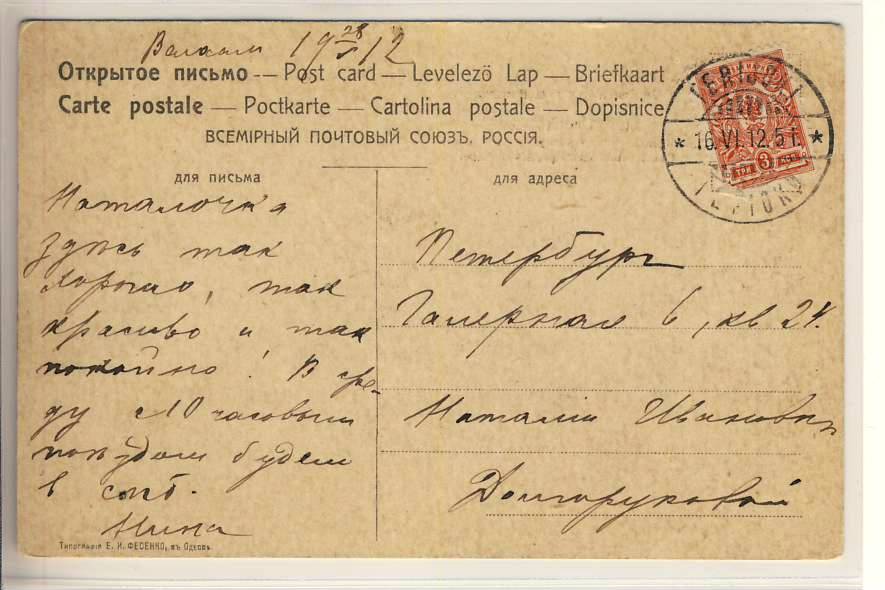 Валаам 19 28/V 12
Открытое письмо — Post card — Levelezö Lap — Briefkaart
Carte postale — Poctkarte — Cartolina postale — Dopisnice
ВСЕМIРНЫЙ ПОЧТОВЫЙ СОЮЗЪ. РОССIЯ.
для письма
Наталочка
здѣсь так
хорошо, так
красиво и так
покойно! В сре-
ду с 10 часовым
поѣздом будем
в спб.
Нина
Типографiя Е. И. ФЕСЕНКО, въ Одессѣ.
для адреса
Петербург
Галерная 6, кв 24.
Наталии Ивановны
Долгоруковой
TERIJOKI
* 16.VI.12. 5 i. *
ТЕРIОКИ
ТРИ 3 КОП.